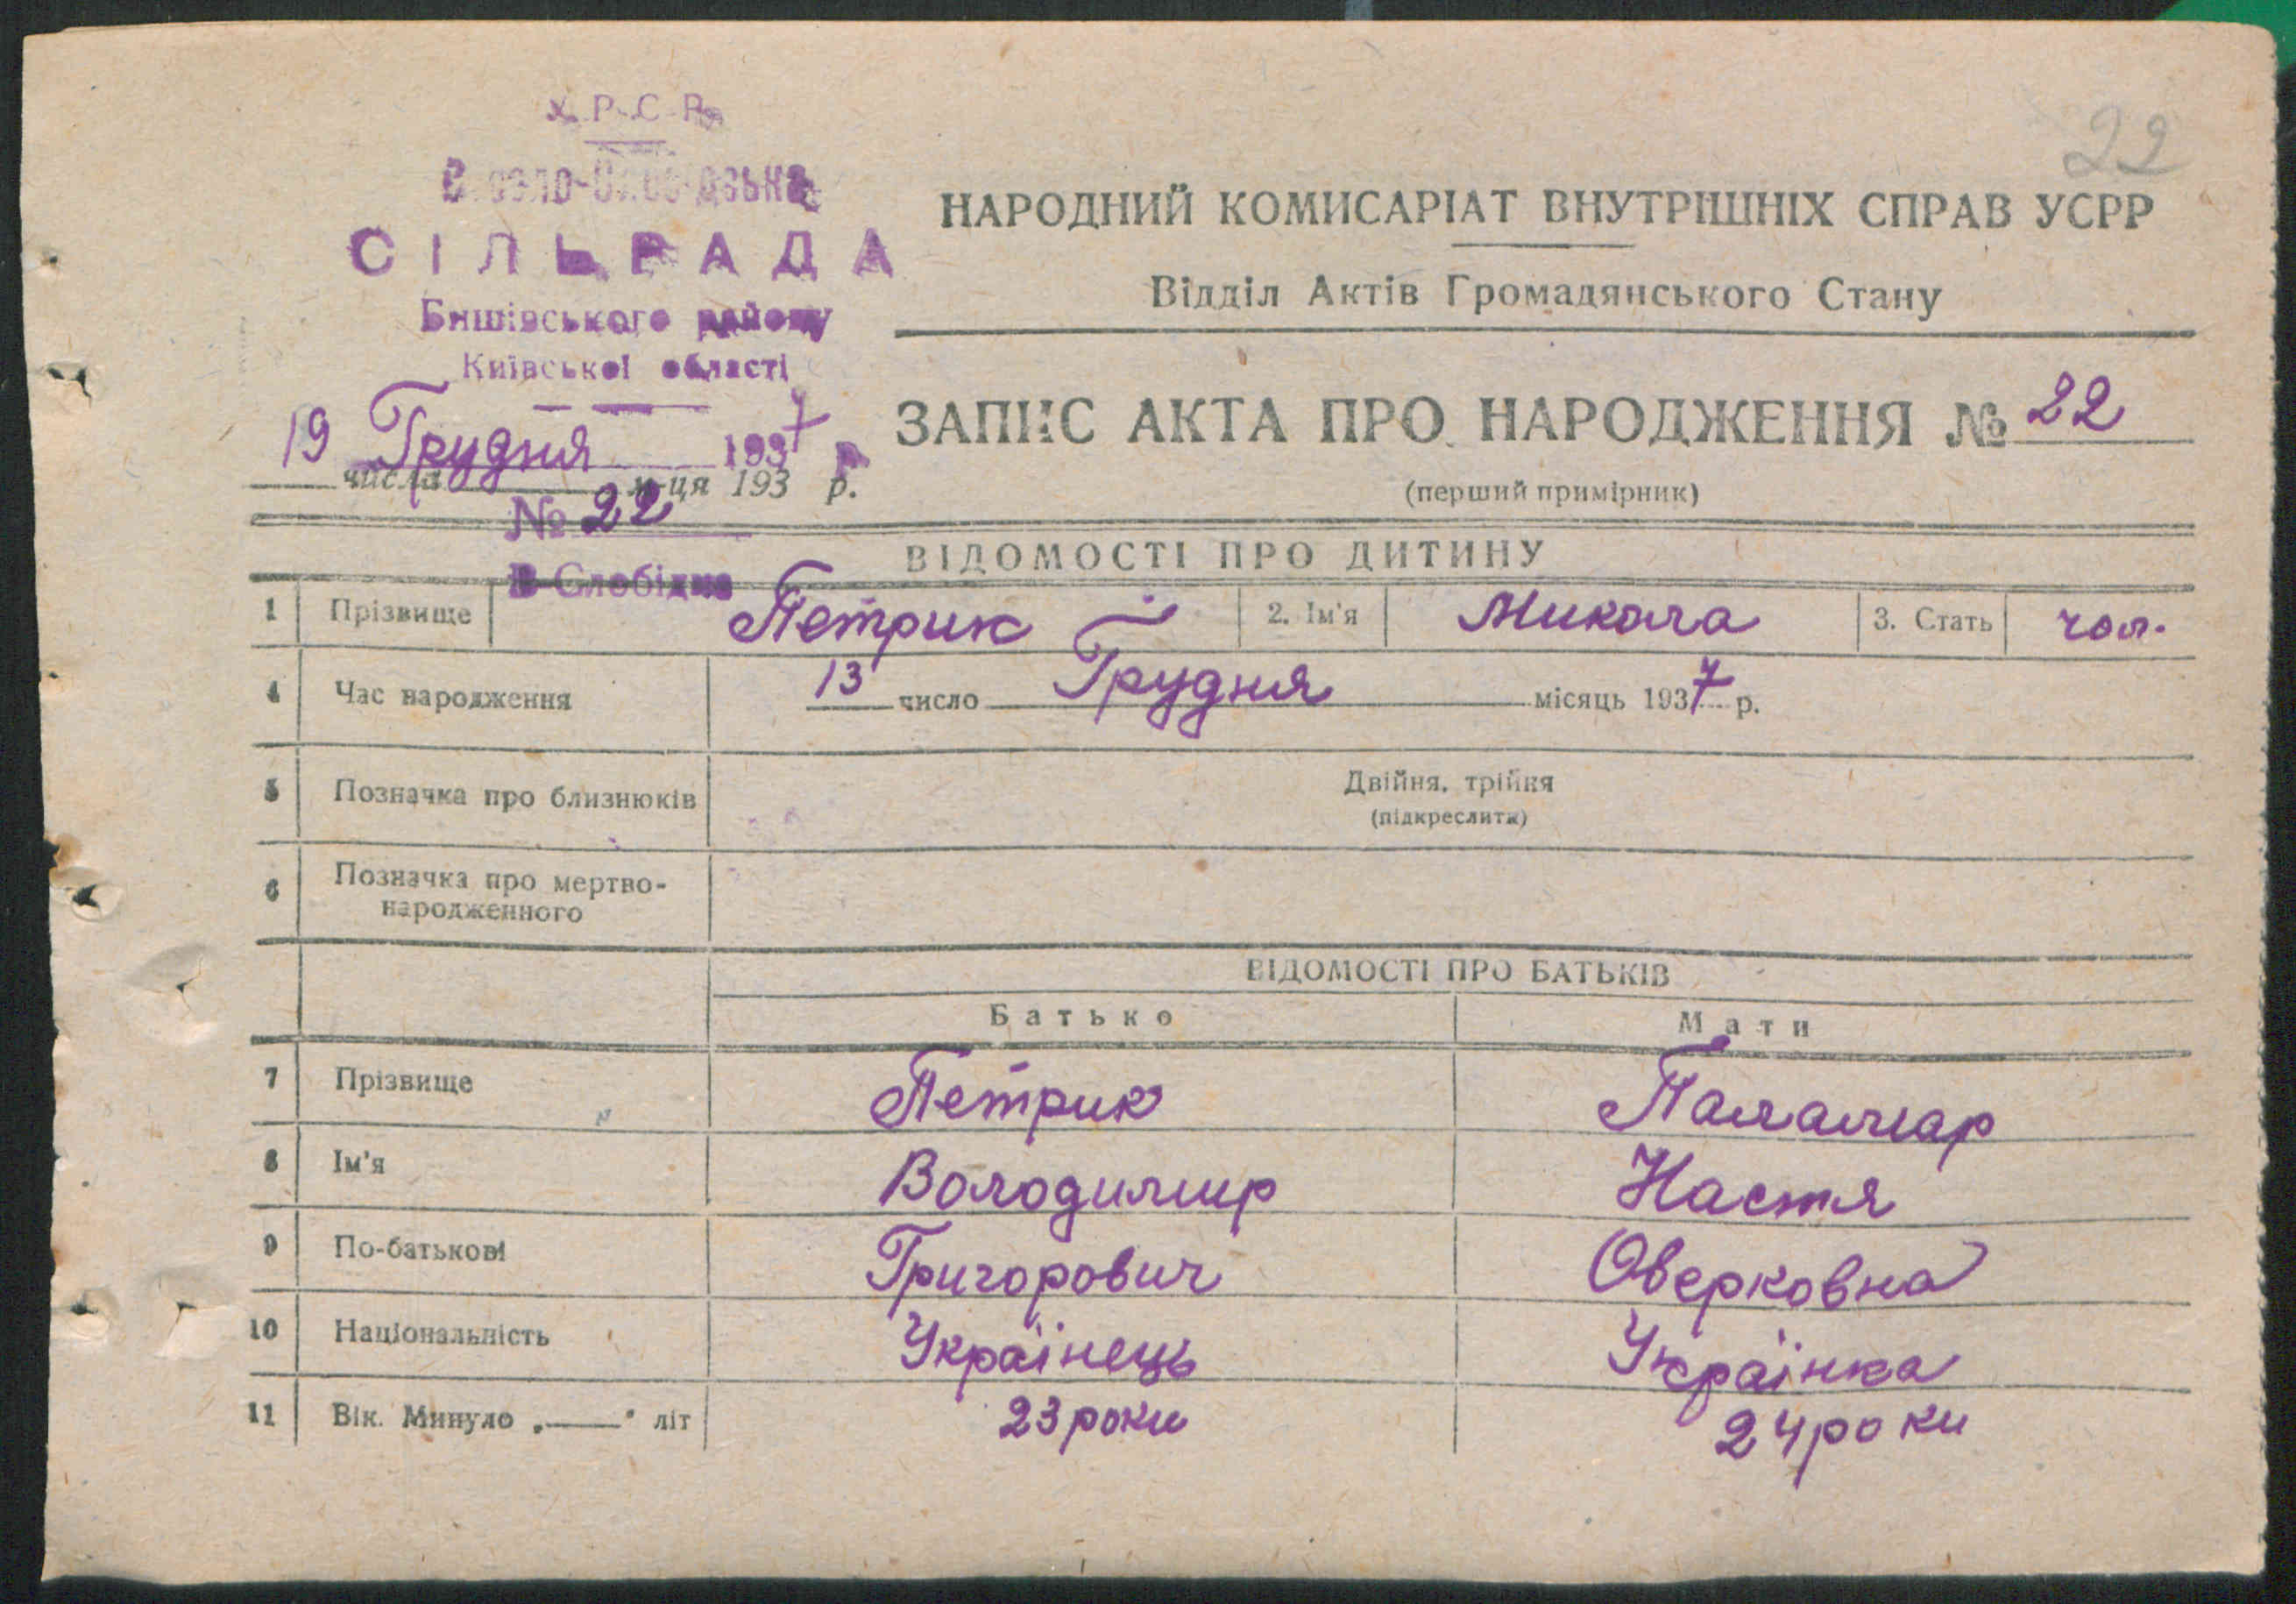 У.Р.С.Р.
СІЛЬРАДА
Бишівського району
Київської області
22
НАРОДНИЙ КОМИСАРІАТ ВНУТРІШНІХ СПРАВ УСРР
Відділ Актів Громадянського Стану
19 Грудня 1937 р.
числа м-ця 193 р.
№ 22
В-Слобідка
ЗАПИС АКТА ПРО НАРОДЖЕННЯ № 22
(перший примірник)
ВІДОМОСТІ ПРО ДИТИНУ
1 Прізвище Петрик 2. Ім'я Микола 3. Стать чол.
4 Час народження 13 число Грудня місяць 1937 р.
5 Позначка про близнюків Двійня, трійня
(підкреслити)
6 Позначка про мертво-
народженного
ВІДОМОСТІ ПРО БАТЬКІВ
Батько Мати
7 Прізвище Петрик Паламар
8 Ім'я Володимир Настя
9 По-батькові Григорович Оверковна
10 Національність Українець Українка
11 Вік. Минуло „——" літ 23 роки 24 роки